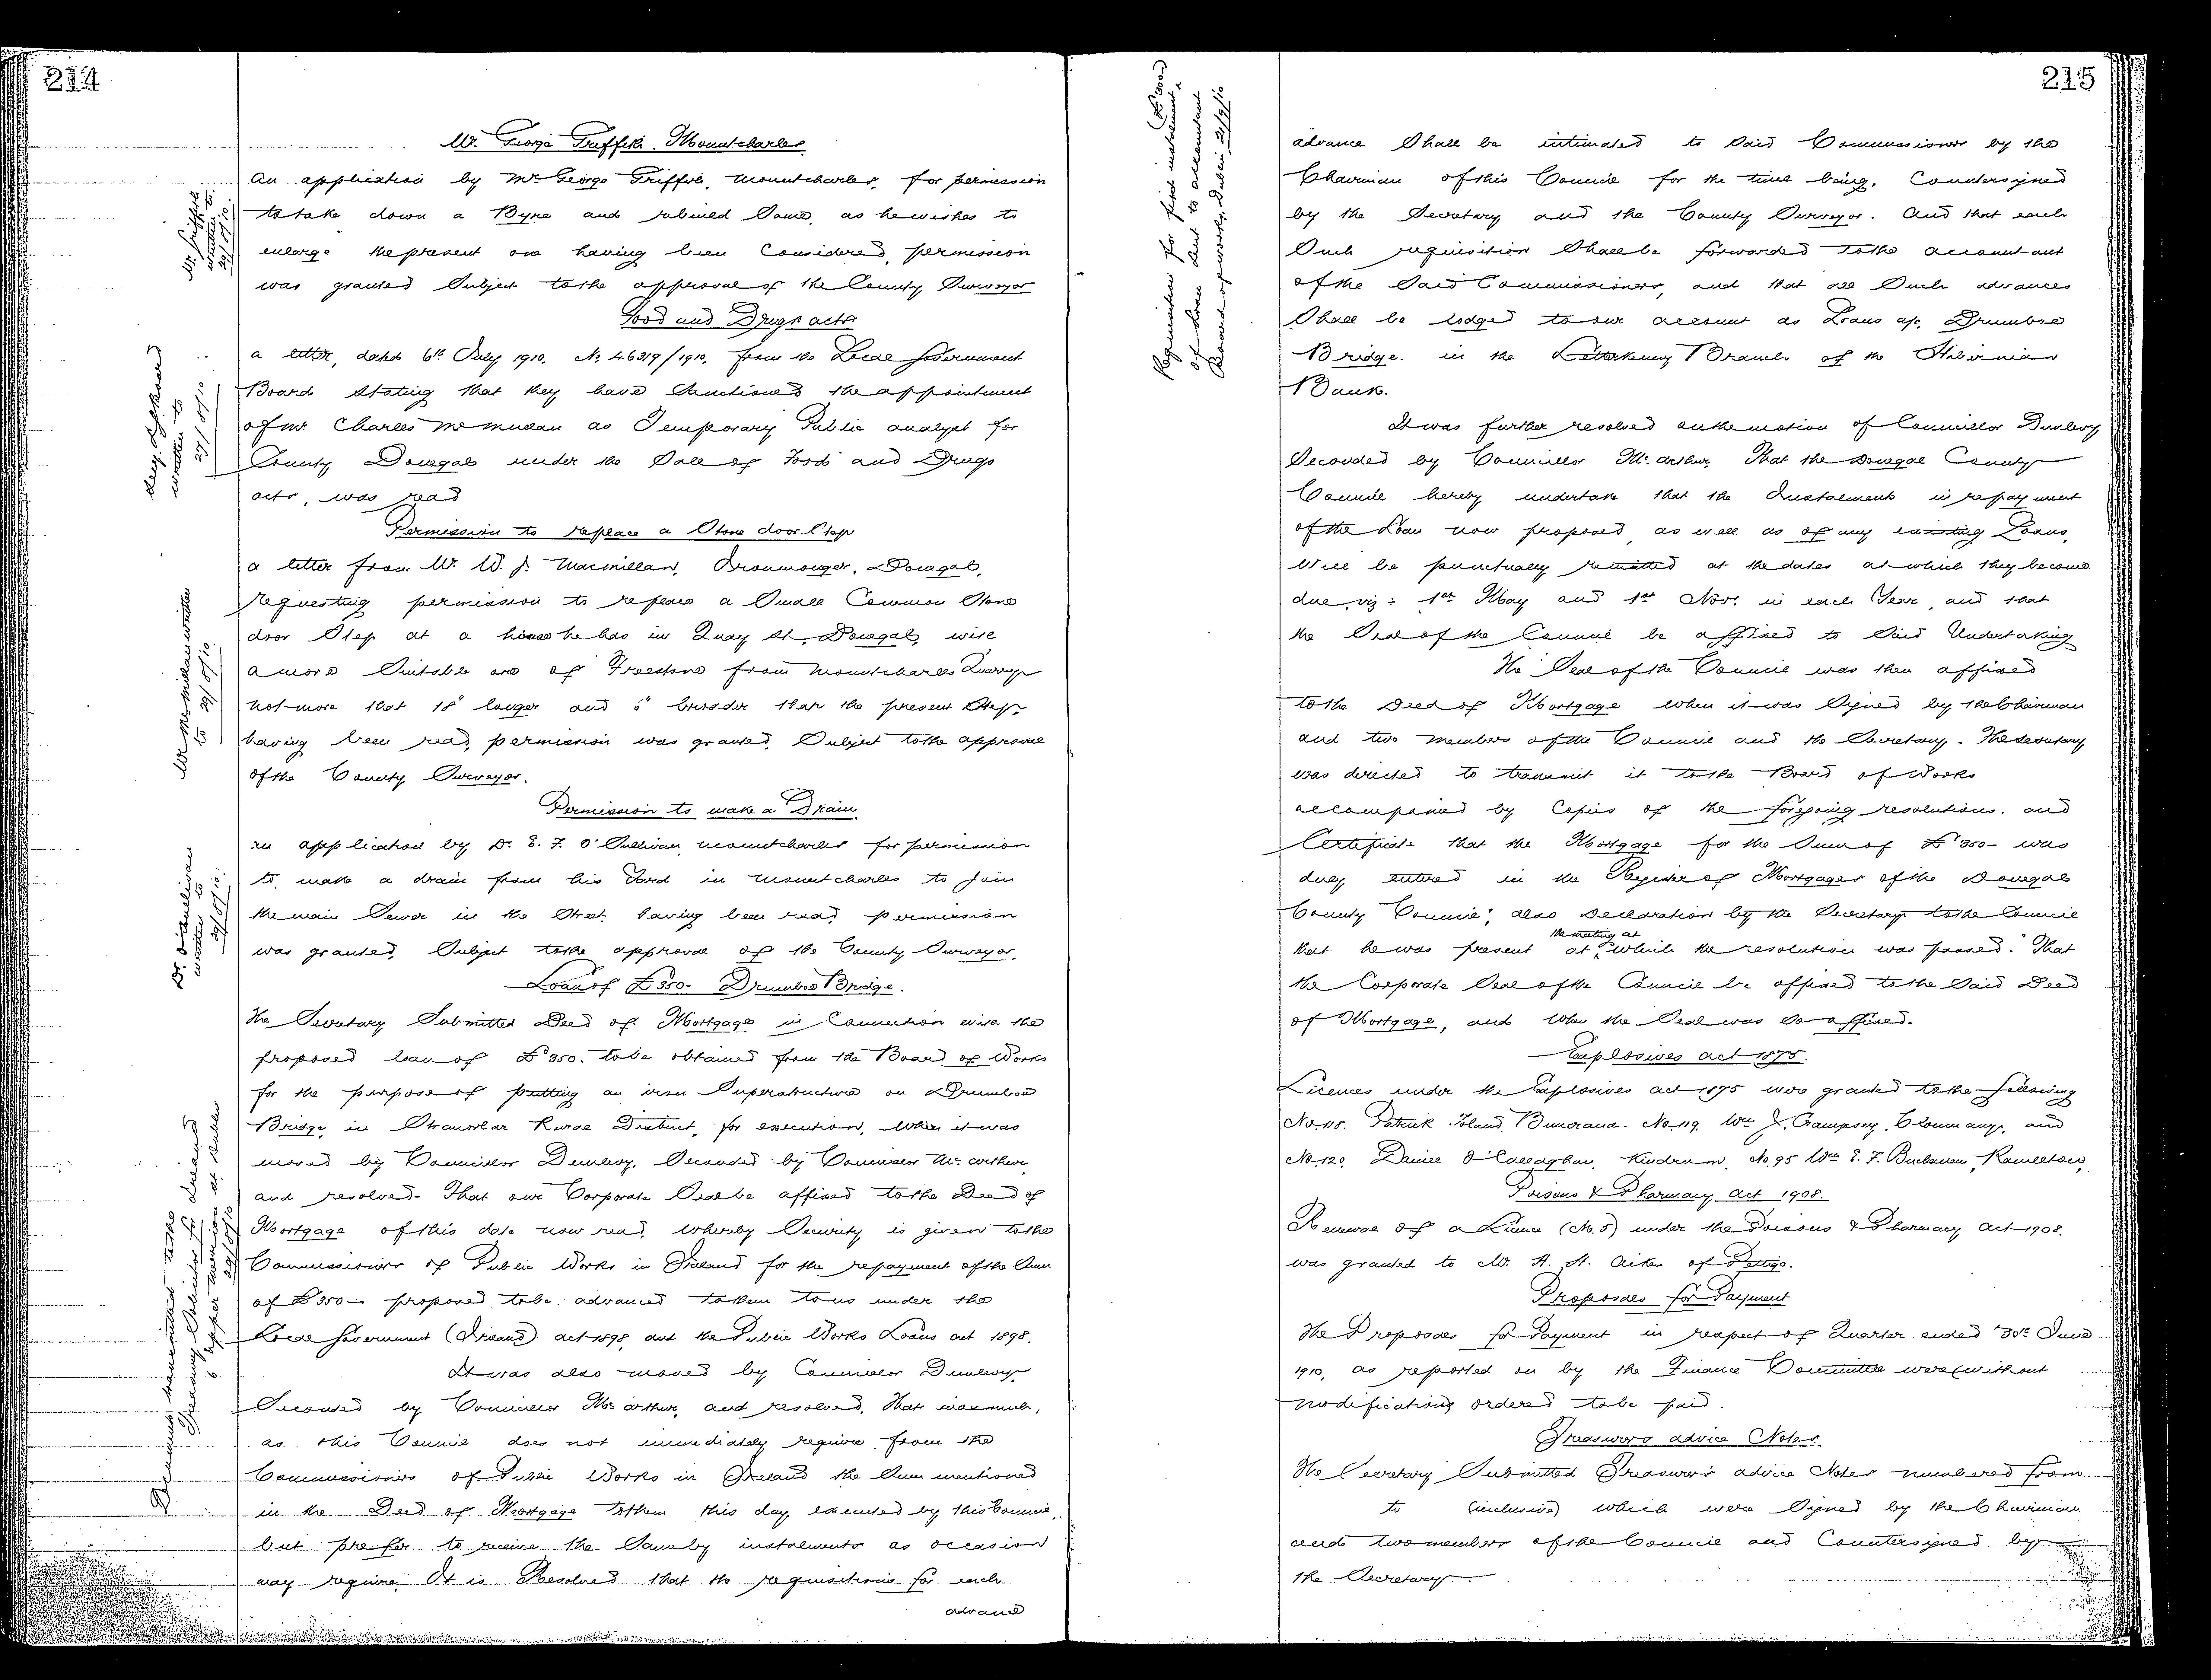 214
Mr. George Griffith. Mountcharles
An application by Mr. George Griffith, Mountcharles, for permission
to take down a Byre and rebuild same, as he wishes to
enlarge the present one having been Considered, permission
was granted Subject to the approval of the County Surveyor
Food and Drugs acts
a letter, dated 6th July 1910. No. 46319/1910, from the Local Government
Board stating that they have Sanctioned the appointment
of Mr Charles as Temporary Public analyst for
County Donegal under the Sale of Food and Drugs
acts, was read
Permission to replace a Stone door Step
a letter from Mr. W. J. Macmillan, Ironmonger, Donegal,
requesting permission to replace a Small Common Stone
door Step at a house he has in Quay St. Donegal, with
a more Suitable one of Freestone from Mountcharles Quarry
not more that 18" longer and 6" broader than the present Step,
having been read, permission was granted, Subject to the approval
of the County Surveyor.
Permission to make a Drain
an application by Dr. E. F. O'Sullivan, Mountcharles for permission
to make a drain from his Yard in Mountcharles to join
the main Sewer in the Street, having been read, permission
was granted, Subject to the approval of the County Surveyor.
Loan of £350- Drumboe Bridge.
The Secretary Submitted Deed of Mortgage in Connection with the
proposed loan of £350. to be obtained from the Board of Works
for the purpose of putting an iron Superstructure on Drumboe
Bridge, in Stranorlar Rural District, for execution, When it was
moved by Councillor Dunlevy, Seconded by Councillor McArthur,
and resolved- That our Corporate Seal be affixed to the Deed of
Mortgage of this date now read, whereby Security is given to the
Commissioners of Public Works in Ireland for the repayment of the Sum
of £350- proposed to be advanced to us under the
Local Government (Ireland) act 1898, and the Public Works Loans act 1898.
It was also moved by Councillor Dunlevy
Seconded by Councillor McArthur, and resolved, That inasmuch,
as this Council does not immediately require from the
Commissioners of Public Works in Ireland the Sum mentioned
in the Deed of Mortgage to them this day executed by this Council,
but prefer to receive the Same by instalments as occasion
may require, It is Resolved that the requisitions for each
advance
Mr. Griffith
written to
29/8/10
written to
29/8/10
Mr McMillan written
to 29/8/10
Dr. O'Sullivan
written to
29/8/10
Documents transmitted to the
Treasury Solicitor for Ireland
29/8/10
215
Requisition for first instalment (£300)
of Loan sent to accountant
Board of works, Dublin 21/9/10
advance Shall be intimated to Said Commissioners by the
Chairman of this Council for the time being, Countersigned
by the Secretary and the County Surveyor. And that each
Such requisition Shall be forwarded to the accountant
of the Said Commissioners, and that all Such advances
Shall be lodged to our account as Loans a/c. Drumboe
Bridge. in the Letterkenny Branch of the Hibernian
Bank.
It was further resolved on the motion of Councillor Dunlevy
Seconded by Councillor McArthur, That the Donegal County
Council hereby undertake that the Instalments in repayment
of the Loan now proposed, as well as of any existing Loans,
Will be punctually remitted at the dates at which they become
due, viz: 1st May and 1st Nov. in each Year, and that
the Seal of the Council be affixed to Said Undertaking
The Seal of the Council was then affixed
to the Deed of Mortgage when it was Signed by the Chairman
and two members of the Council and the Secretary. The Secretary
was directed to transmit it to the Board of Works
accompanied by Copies of the foregoing resolutions. and
Certificate that the Mortgage for the Sum of £350- was
duly entered in the Register of Mortgages of the Donegal
County Council; also Declaration by the Secretary to the Council
the meeting at
that he was present at which the resolution was passed. "That
the Corporate Seal of the Council be affixed to the Said Deed
of Mortgage, and When the Seal was so affixed.
Explosives act 1875.
Licences under the Explosives act 1875 were granted to the following
No. 118. Patrick Toland, Buncrana. No. 119. Wm J. Crampsey, Clonmany, and
No. 120. Daniel O'Callaghan, Kindrum, No. 95 Wm E. F. Buchanan, Ramelton,
Poisons & Pharmacy act 1908.
Renewal of a Licence (No. 5) under the Poisons & Pharmacy Act 1908.
was granted to Mr. H. H. Aiken of Pettigo.
Proposals for Payment
The Proposals for Payment in respect of Quarter ended 30th June
1910, as reported on by the Finance Committee were (without
modification) ordered to be paid.
Treasurers advice Notes.
The Secretary Submitted Treasurer's advice Notes numbered from
to (inclusive) which were Signed by the Chairman
and two members of the Council and Countersigned by
the Secretary.